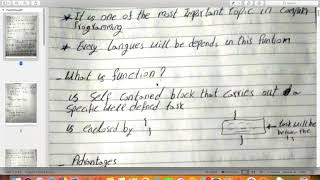 * It is one of the most Important topic in
Programming
* Every langues will be depends in this funtion
- What is function?
is self contained block that carries out a
specific were defined task
is enclosed by { }
task will be
before the
{ }
- Advantages